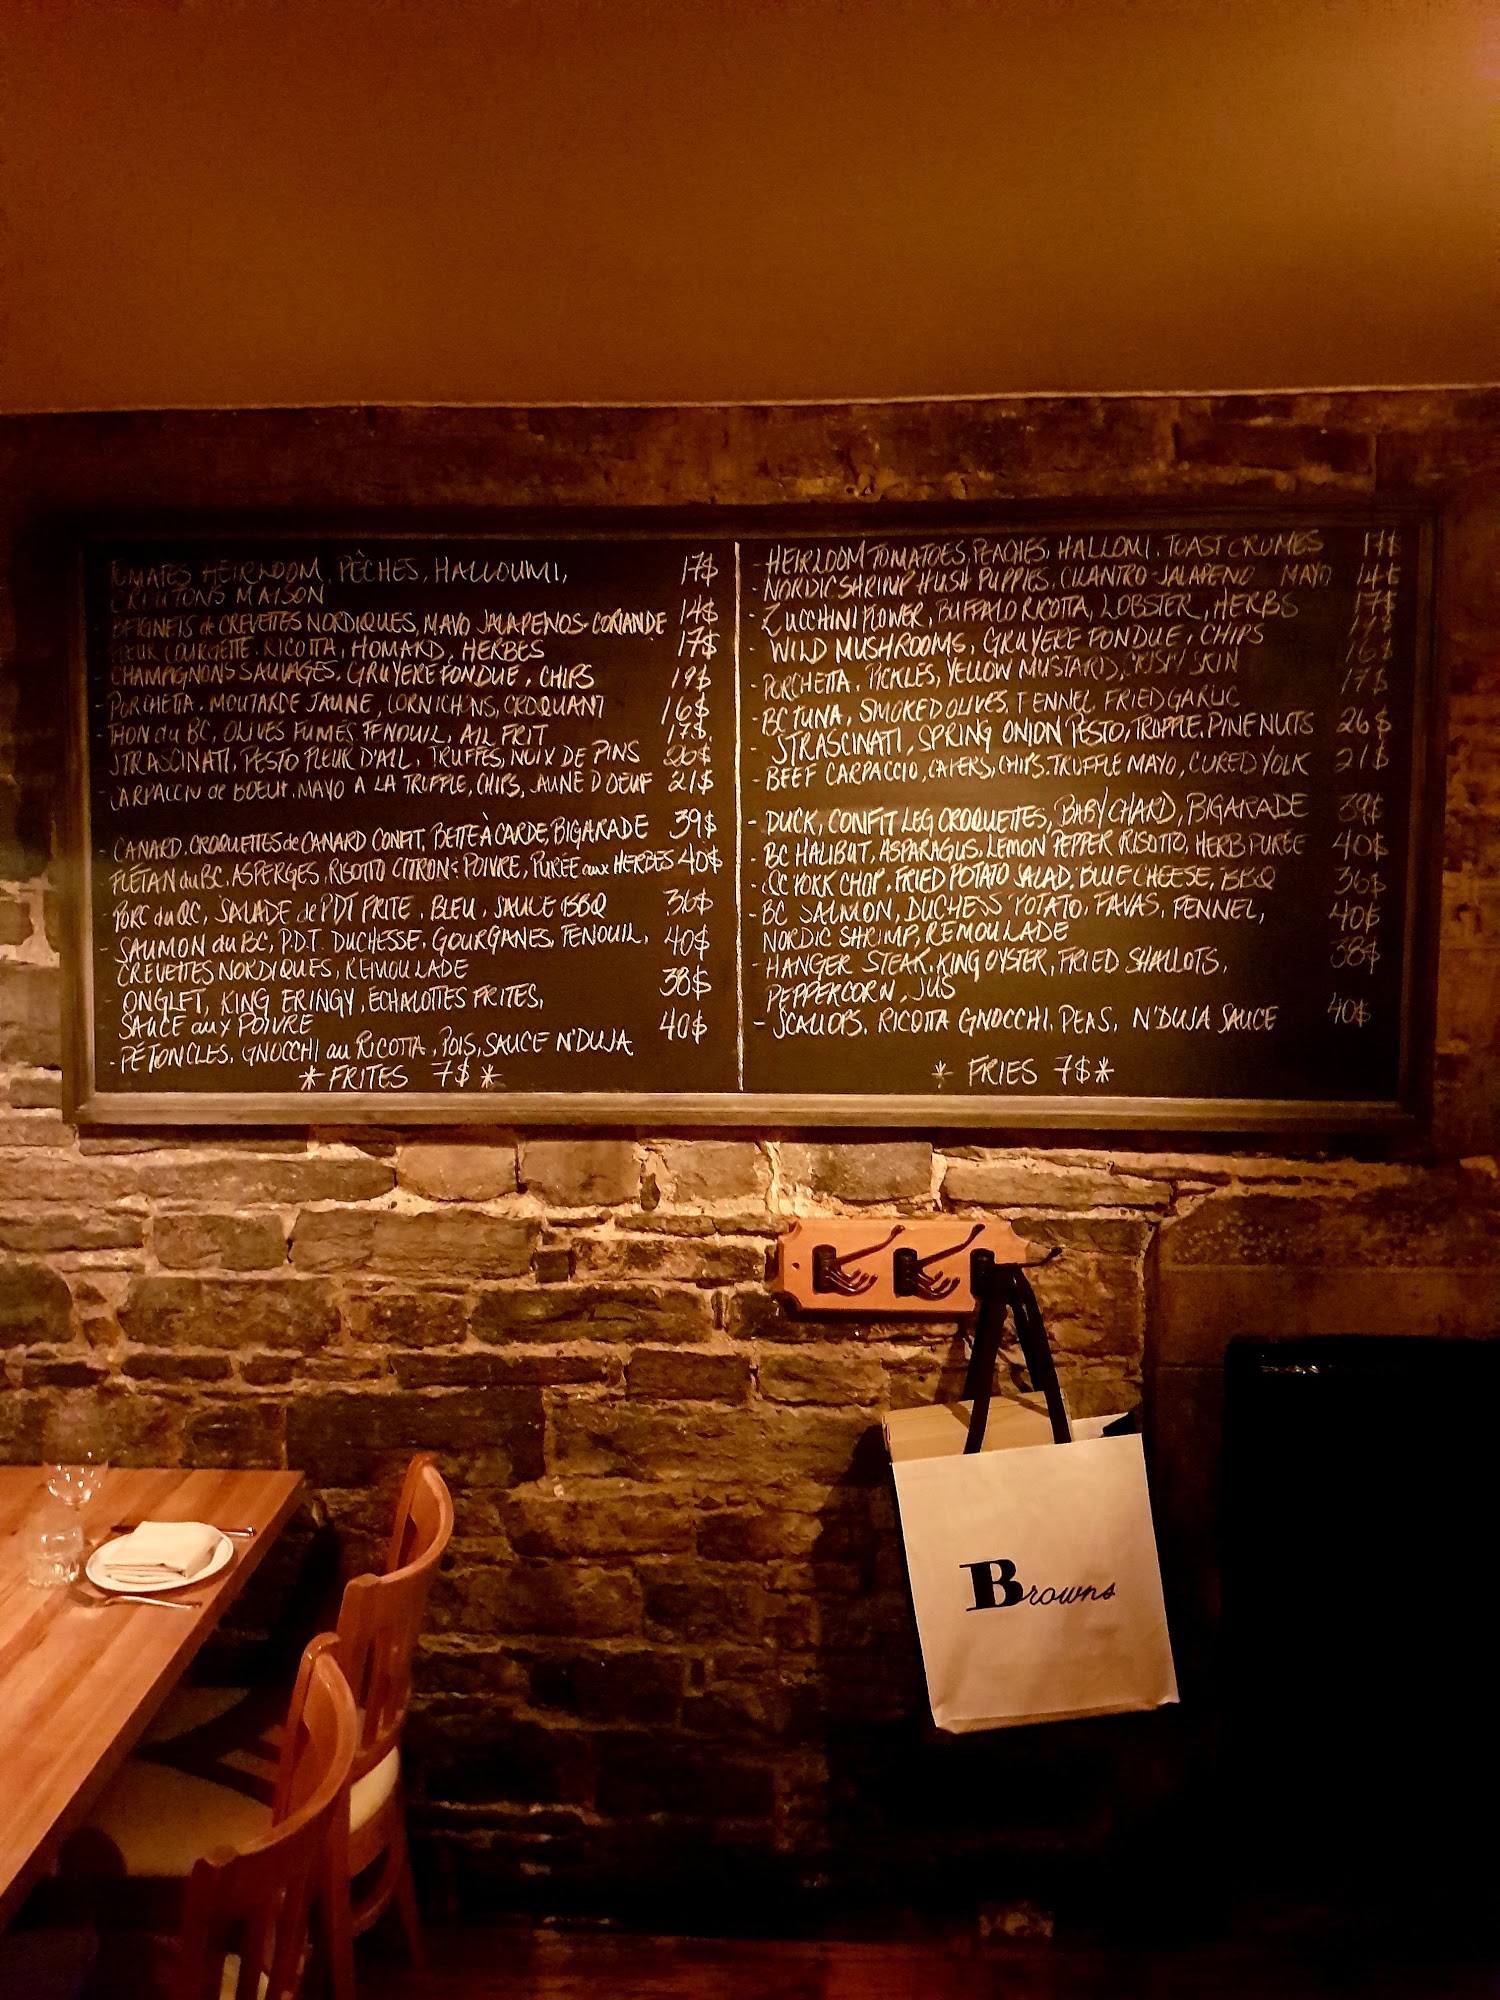 TOMATES HEIRLOOM, PÊCHES, HALLOUMI, 17$
CROUTONS MAISON
- BEIGNETS de CREVETTES NORDIQUES, MAYO JALAPENOS-CORIANDE 14$
- FLEUR COURGETTE, RICOTTA, HOMARD, HERBES 17$
- CHAMPIGNONS SAUVAGES, GRUYERE FONDUE, CHIPS 19$
- PORCHETTA, MOUTARDE JAUNE, CORNICHONS, CROQUANT 16$
- THON du BC, OLIVES FUMÉS FENOUIL, AIL FRIT 17$
- STRASCINATI, PESTO FLEUR D'AIL, TRUFFES, NOIX DE PINS 26$
- CARPACCIO de BOEUF, MAYO A LA TRUFFLE, CHIPS, JAUNE D'OEUF 21$
- CANARD, CROQUETTES de CANARD CONFIT, BETTE À CARDE, BIGARADE 39$
FLÉTAN du BC, ASPERGES, RISOTTO CITRON & POIVRE, PURÉE aux HERBES 40$
- PORC du QC, SALADE de PDT FRITE, BLEU, SAUCE BBQ 36$
- SAUMON du BC, P.D.T. DUCHESSE, GOURGANES, FENOUIL, 40$
CREVETTES NORDIQUES, REMOULADE
- ONGLET, KING ERINGY, ÉCHALOTTES FRITES, 38$
SAUCE aux POIVRE
- PÉTONCLES, GNOCCHI au RICOTTA, POIS, SAUCE N'DUJA 40$
* FRITES 7$ *
- HEIRLOOM TOMATOES, PEACHES, HALLOMI, TOAST CRUMBS 17$
- NORDIC SHRIMP HUSH PUPPIES, CILANTRO-JALAPENO MAYO 14$
- ZUCCHINI FLOWER, BUFFALO RICOTTA, LOBSTER, HERBS 17$
- WILD MUSHROOMS, GRUYERE FONDUE, CHIPS
- PORCHETTA, PICKLES, YELLOW MUSTARD, CRISPY SKIN 16$
- BC TUNA, SMOKED OLIVES, FENNEL, FRIED GARLIC 17$
- STRASCINATI, SPRING ONION PESTO, TRUFFLE, PINE NUTS 26$
- BEEF CARPACCIO, CAPERS, CHIPS, TRUFFLE MAYO, CURED YOLK 21$
- DUCK, CONFIT LEG CROQUETTES, BABY CHARD, BIGARADE 39$
- BC HALIBUT, ASPARAGUS, LEMON PEPPER RISOTTO, HERB PURÉE 40$
- QC PORK CHOP, FRIED POTATO SALAD, BLUE CHEESE, BBQ 36$
- BC SALMON, DUCHESS POTATO, FAVAS, FENNEL, 40$
NORDIC SHRIMP, REMOULADE
- HANGER STEAK, KING OYSTER, FRIED SHALLOTS, 38$
PEPPERCORN, JUS
- SCALLOPS, RICOTTA GNOCCHI, PEAS, N'DUJA SAUCE 40$
* FRIES 7$ *
Browns